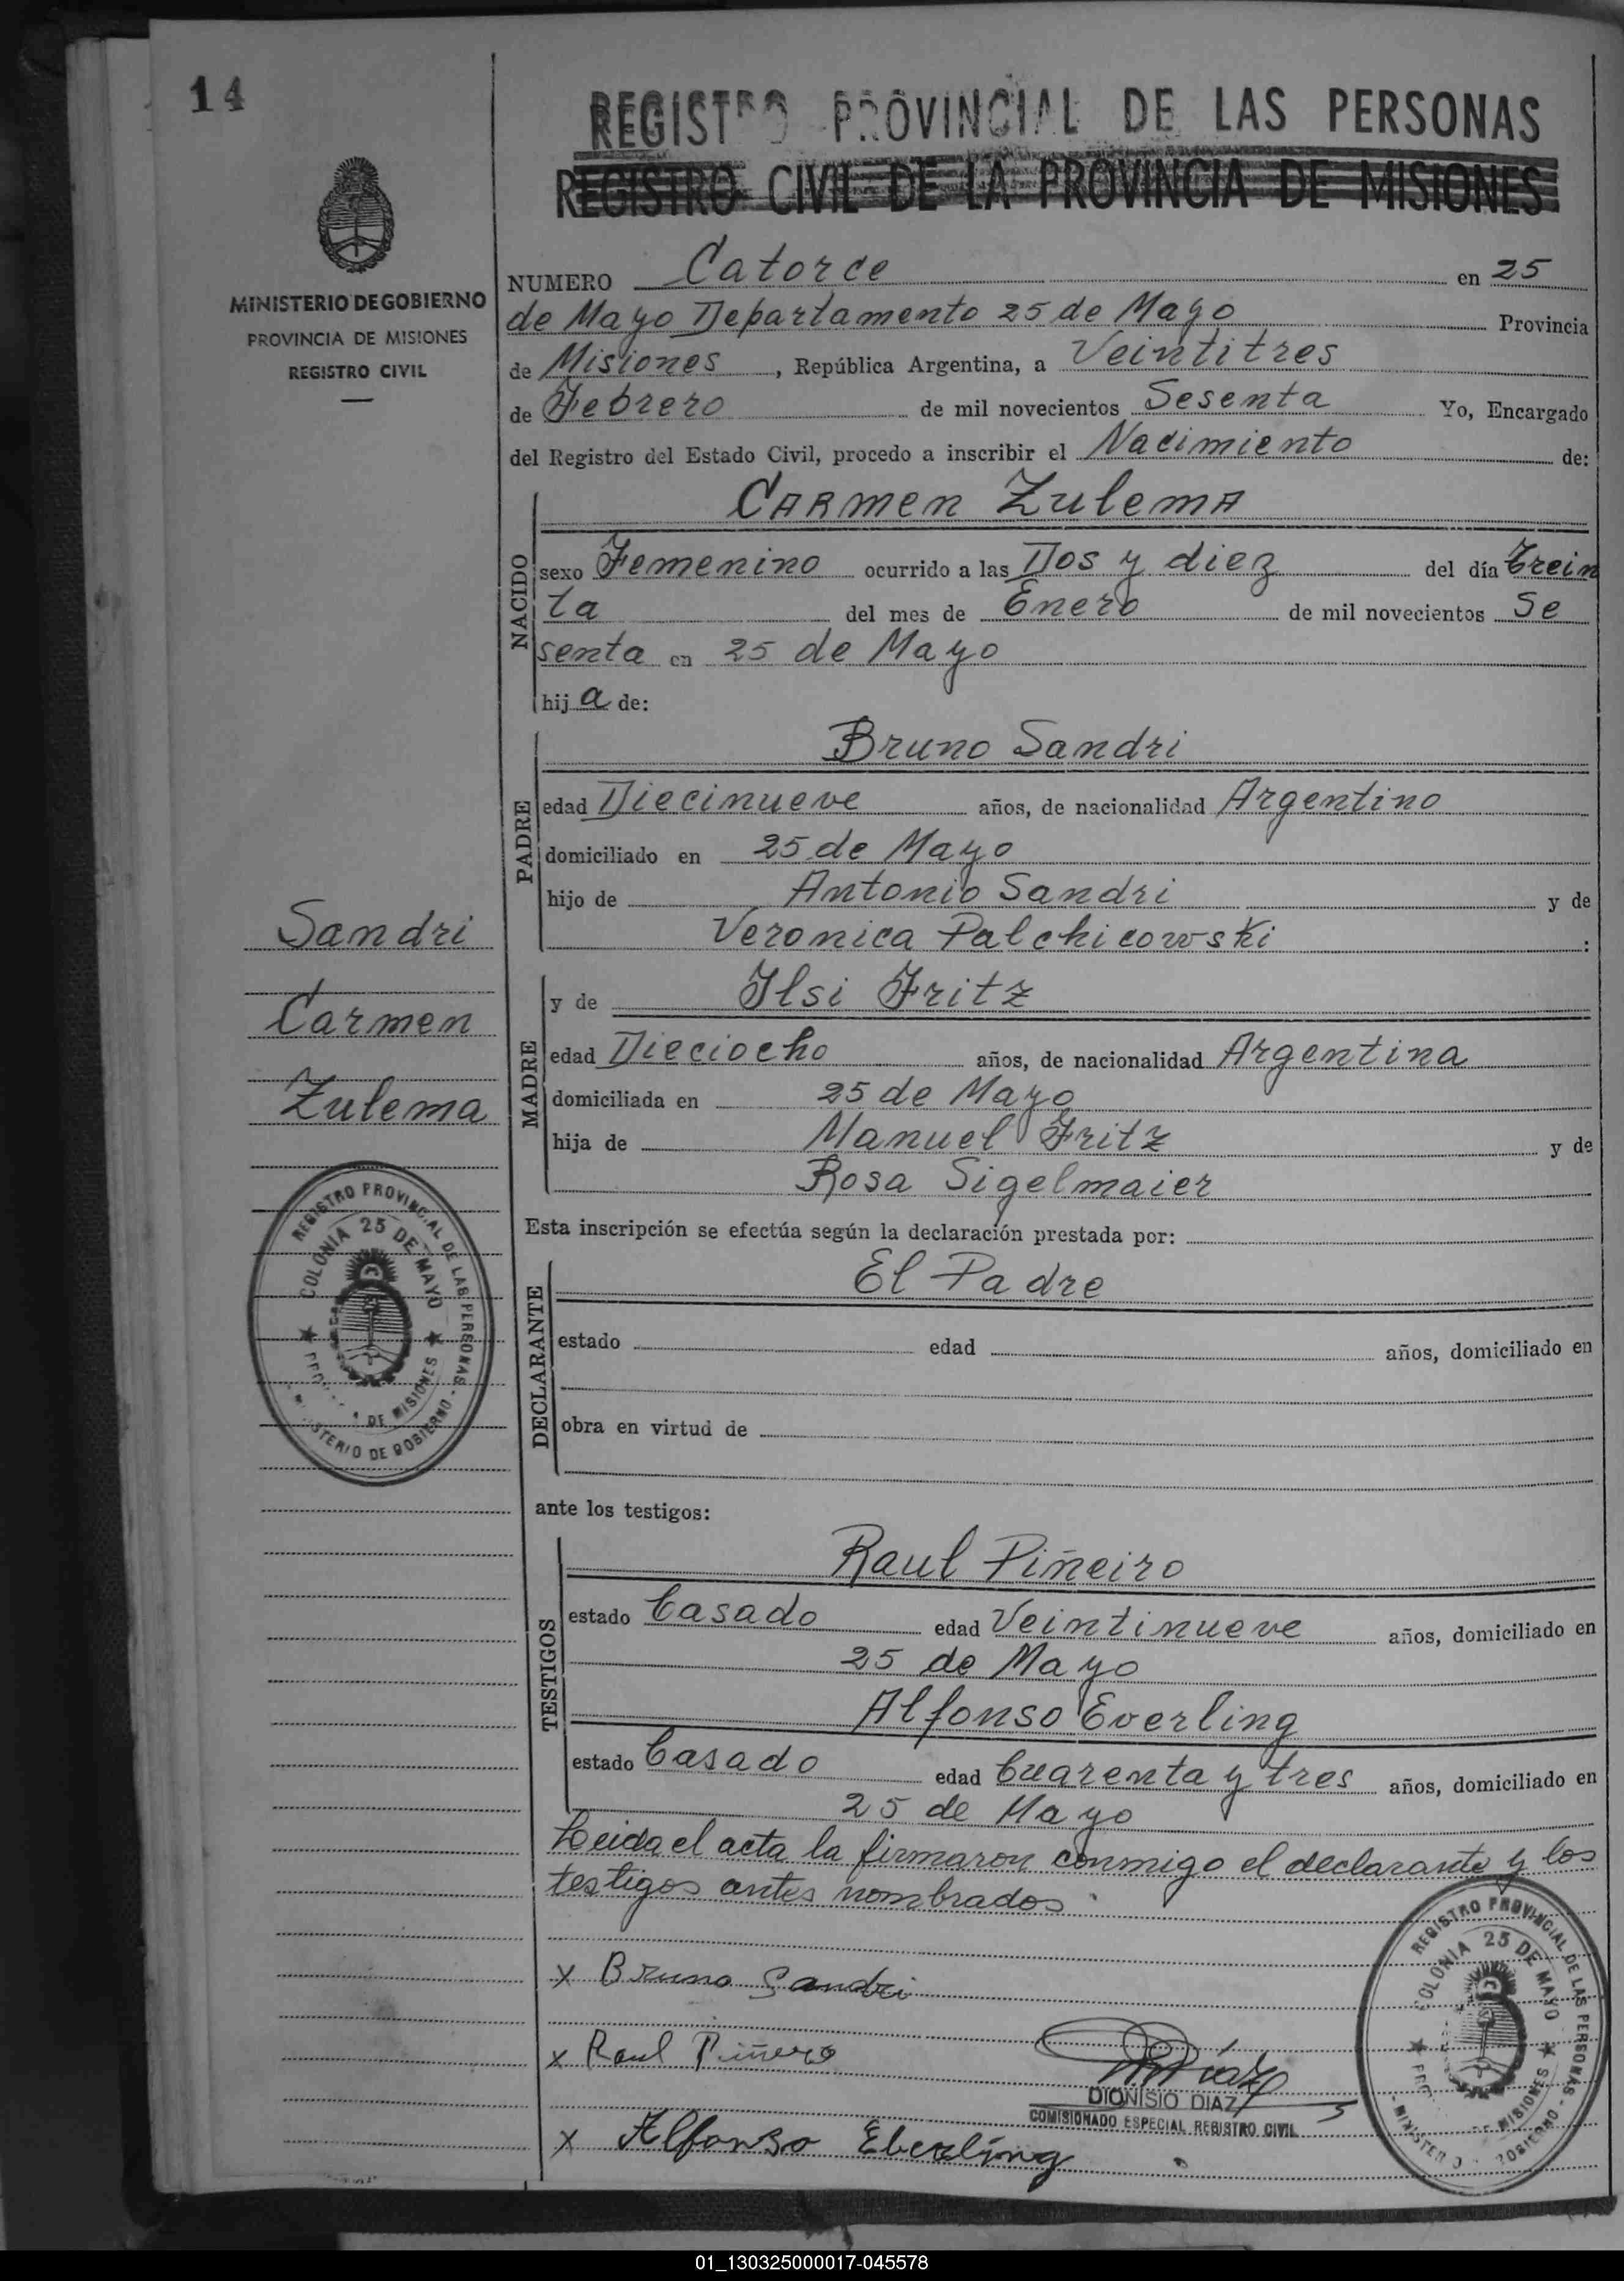 14
REGISTRO PROVINCIAL DE LAS PERSONAS
REGISTRO CIVIL DE LA PROVINCIA DE MISIONES
MINISTERIO DE GOBIERNO
PROVINCIA DE MISIONES
REGISTRO CIVIL
NUMERO Catorce en 25
de Mayo Departamento 25 de Mayo Provincia
de Misiones, República Argentina, a Veintitres
de Febrero de mil novecientos Sesenta Yo, Encargado
del Registro del Estado Civil, procedo a inscribir el Nacimiento de:
NACIDO
Carmen Zulema
sexo Femenino ocurrido a las Dos y diez del día Trein
ta del mes de Enero de mil novecientos Se
senta en 25 de Mayo
hija de:
PADRE
Bruno Sandri
edad Diecinueve años, de nacionalidad Argentino
domiciliado en 25 de Mayo
hijo de Antonio Sandri y de
Veronica Palchicowski :
Sandri
Carmen
Zulema
MADRE
y de Ilsi Fritz
edad Dieciocho años, de nacionalidad Argentina
domiciliada en 25 de Mayo
hija de Manuel Fritz y de
Rosa Sigelmaier
Esta inscripción se efectúa según la declaración prestada por:
REGISTRO PROVINCIAL DE LAS PERSONAS - MINISTERIO DE GOBIERNO -
COLONIA 25 DE MAYO
DE MISIONES
DECLARANTE
El Padre
estado edad años, domiciliado en
obra en virtud de
ante los testigos:
TESTIGOS
Raul Piñeiro
estado Casado edad Veintinueve años, domiciliado en
25 de Mayo
Alfonso Everling
estado Casado edad Cuarenta y tres años, domiciliado en
25 de Mayo
Leida el acta la firmaron conmigo el declarante y los
testigos antes nombrados.
x Bruno Sandri
x Raul Piñero
Díaz
DIONISIO DIAZ
COMISIONADO ESPECIAL REGISTRO CIVIL
x Alfonso Eberling
REGISTRO PROVINCIAL DE LAS PERSONAS - MINISTERIO DE GOBIERNO -
COLONIA 25 DE MAYO
DE MISIONES
01_130325000017-045578